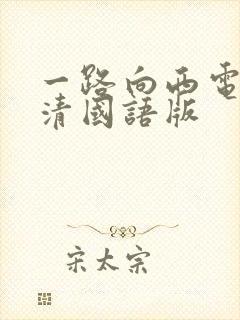 一路向西電
清國語版
宋太宗